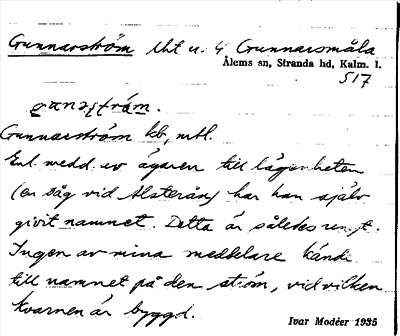 Gunnarström lht u. 4 Gunnarsmåla
Ålems sn, Stranda hd, Kalm. l.
517
Gunnarström kb, mtl.
Enl. medd. av ägaren till lägenheten
(en såg vid Alsterån) har han själv
givit namnet. Detta är således ungt.
Ingen av mina meddelare kände
till namnet på den ström, vid vilken
kvarnen är byggd.
Ivar Modéer 1935